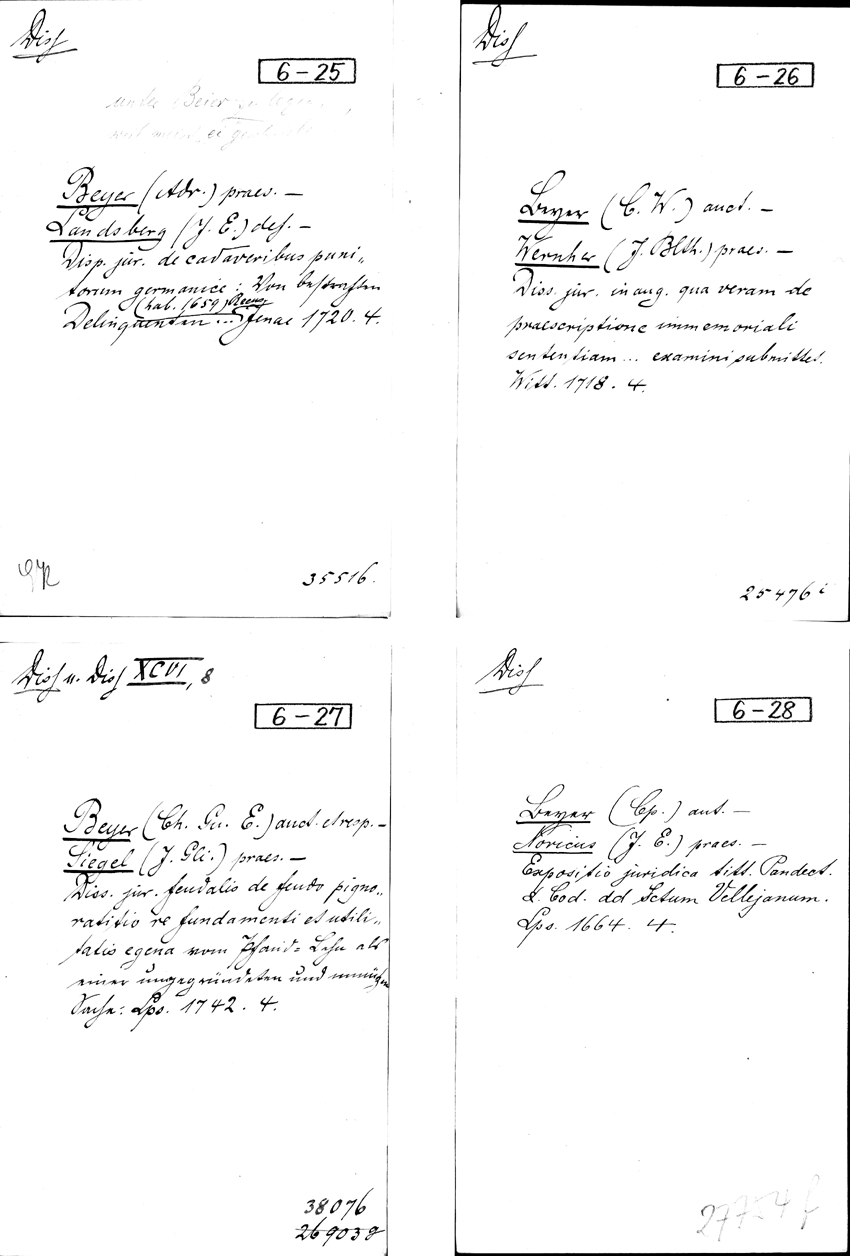 Diss
6-25
unter Beier
Beyer (Adr.) praes. —
Landsberg (J. E.) def. —
Disp. jur. de cadaveribus puni„
torum germanice: Von bestraften
(hab. 1659) Recus
Delinquenten ... Jenae 1720. 4.
35516.
Diss
6-26
Beyer (C. W.) auct. —
Wernher (J. Blth.) praes. —
Diss. jur. inaug. qua veram de
praescriptione immemoriali
sententiam ... examini submittet.
Witt. 1718. 4.
25476 i
Diss u. Diss XCVI, 8
6-27
Beyer (Ch. Gu. E.) auct. et resp. —
Siegel (J. Gli.) praes. —
Diss. jur. feudalis de feudo pigno„
ratitio re fundamenti et utili„
tatis egena vom Pfand= Lehn als
einer ungegründeten und unnützen
Sache: Lps. 1742. 4.
38076
26903 g
Diss
6-28
Beyer (Cp.) aut. —
Noricus (J. E.) praes. —
Expositio juridica titt. Pandect.
& Cod. ad Sctum Vellejanum.
Lps. 1664. 4.
27754 f